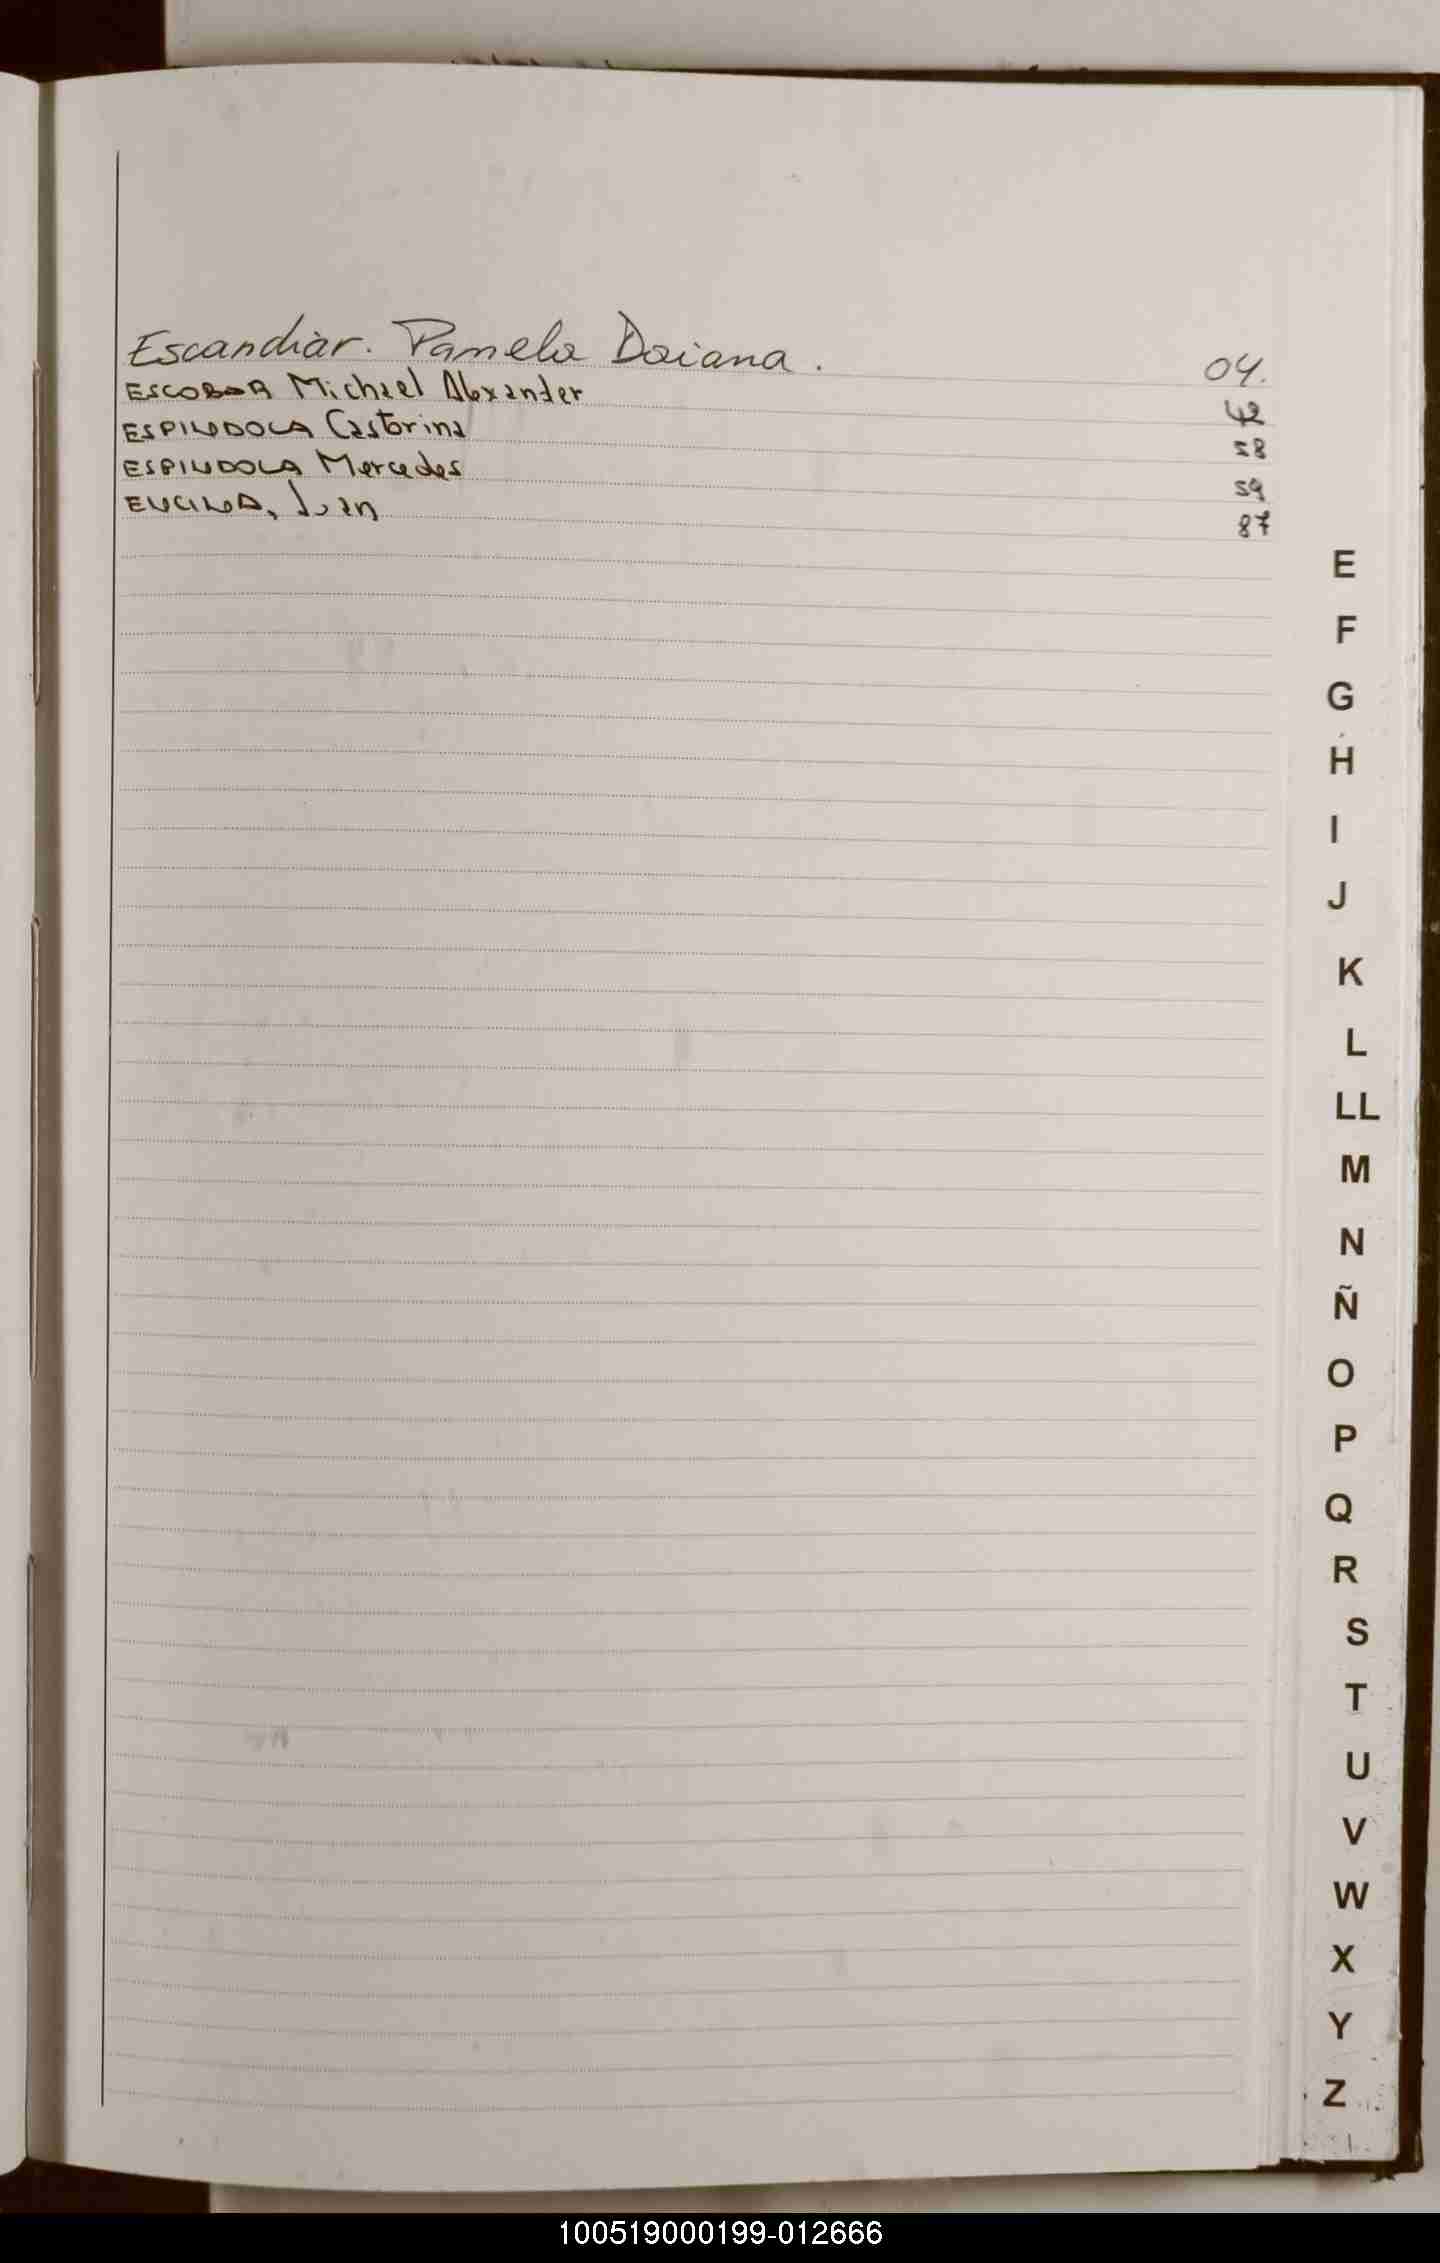 Escandiàr. Pamela Daiana. 04.
ESCOBAR Michael Alexander 42
ESPINDOLA Castorina 58
ESPINDOLA Mercedes 59
ENCINA, Juan 87
E
F
G
H
I
J
K
L
LL
M
N
Ñ
O
P
Q
R
S
T
U
V
W
X
Y
Z
100519000199-012666